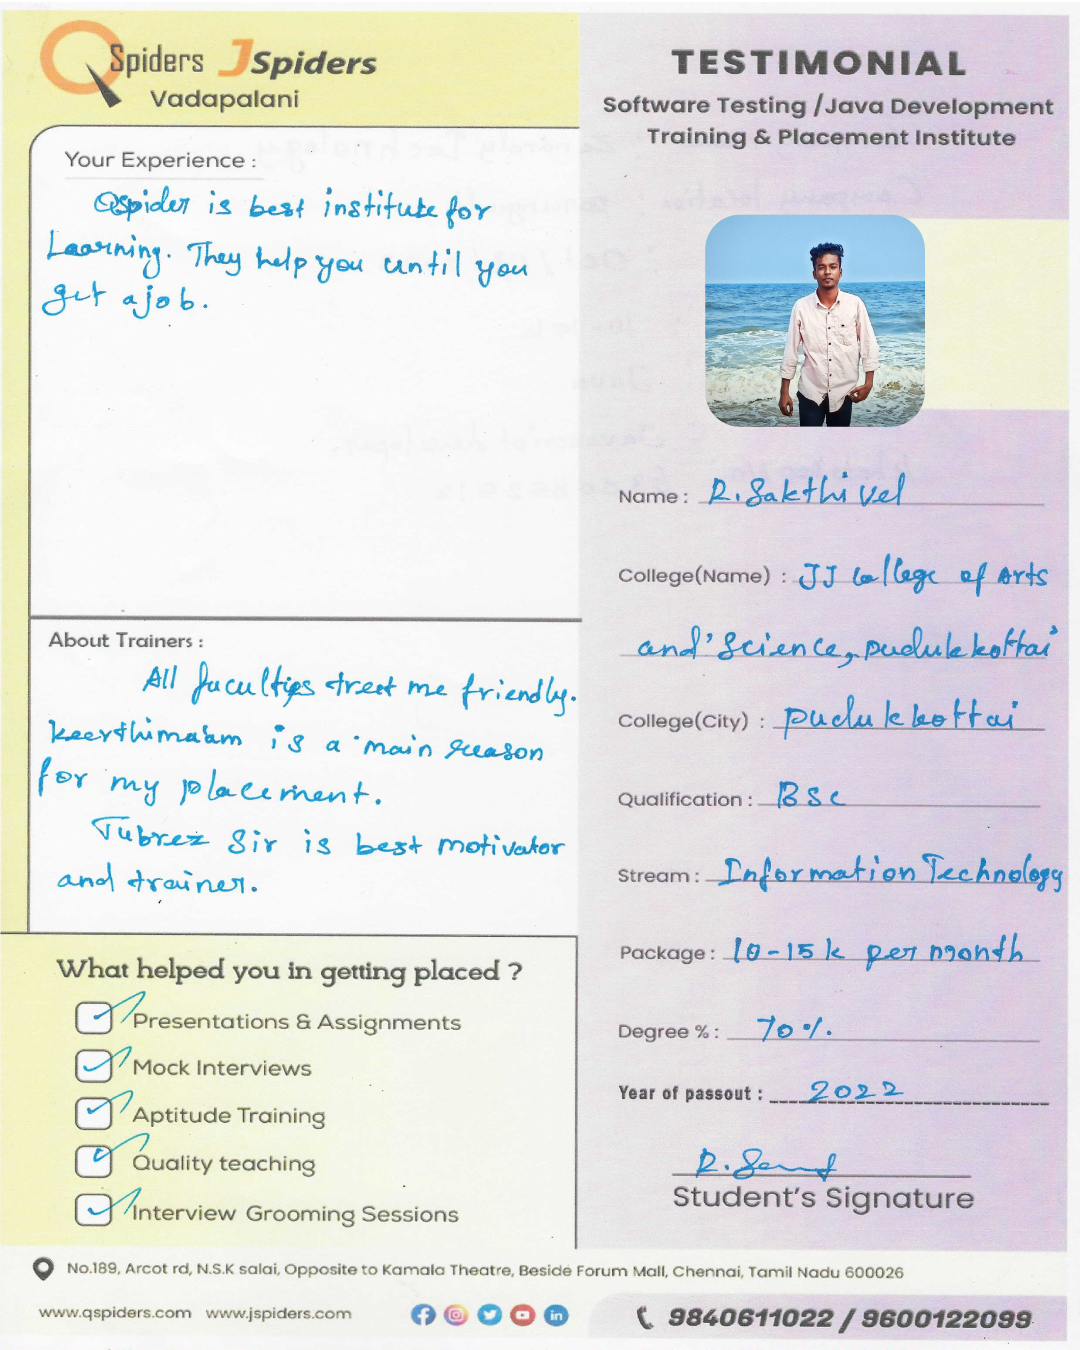 QSpiders JSpiders
Vadapalani
TESTIMONIAL
Software Testing /Java Development
Training & Placement Institute
Your Experience :
Qspider is best institute for
Learning. They help you until you
get a job.
About Trainers :
All faculties treet me friendly.
keerthimaam is a main reason
for my placement.
Tubrez Sir is best motivator
and trainer.
What helped you in getting placed ?
Presentations & Assignments
Mock Interviews
Aptitude Training
Quality teaching
Interview Grooming Sessions
Name : R. Sakthi vel
College(Name) : JJ College of Arts
and Science, pudukkottai
College(City) : pudukkottai
Qualification : BSc
Stream : Information Technology
Package : 10-15k per month
Degree % : 70%
Year of passout : 2022
Student's Signature
No.189, Arcot rd, N.S.K salai, Opposite to Kamala Theatre, Beside Forum Mall, Chennai, Tamil Nadu 600026
www.qspiders.com www.jspiders.com
9840611022 / 9600122099